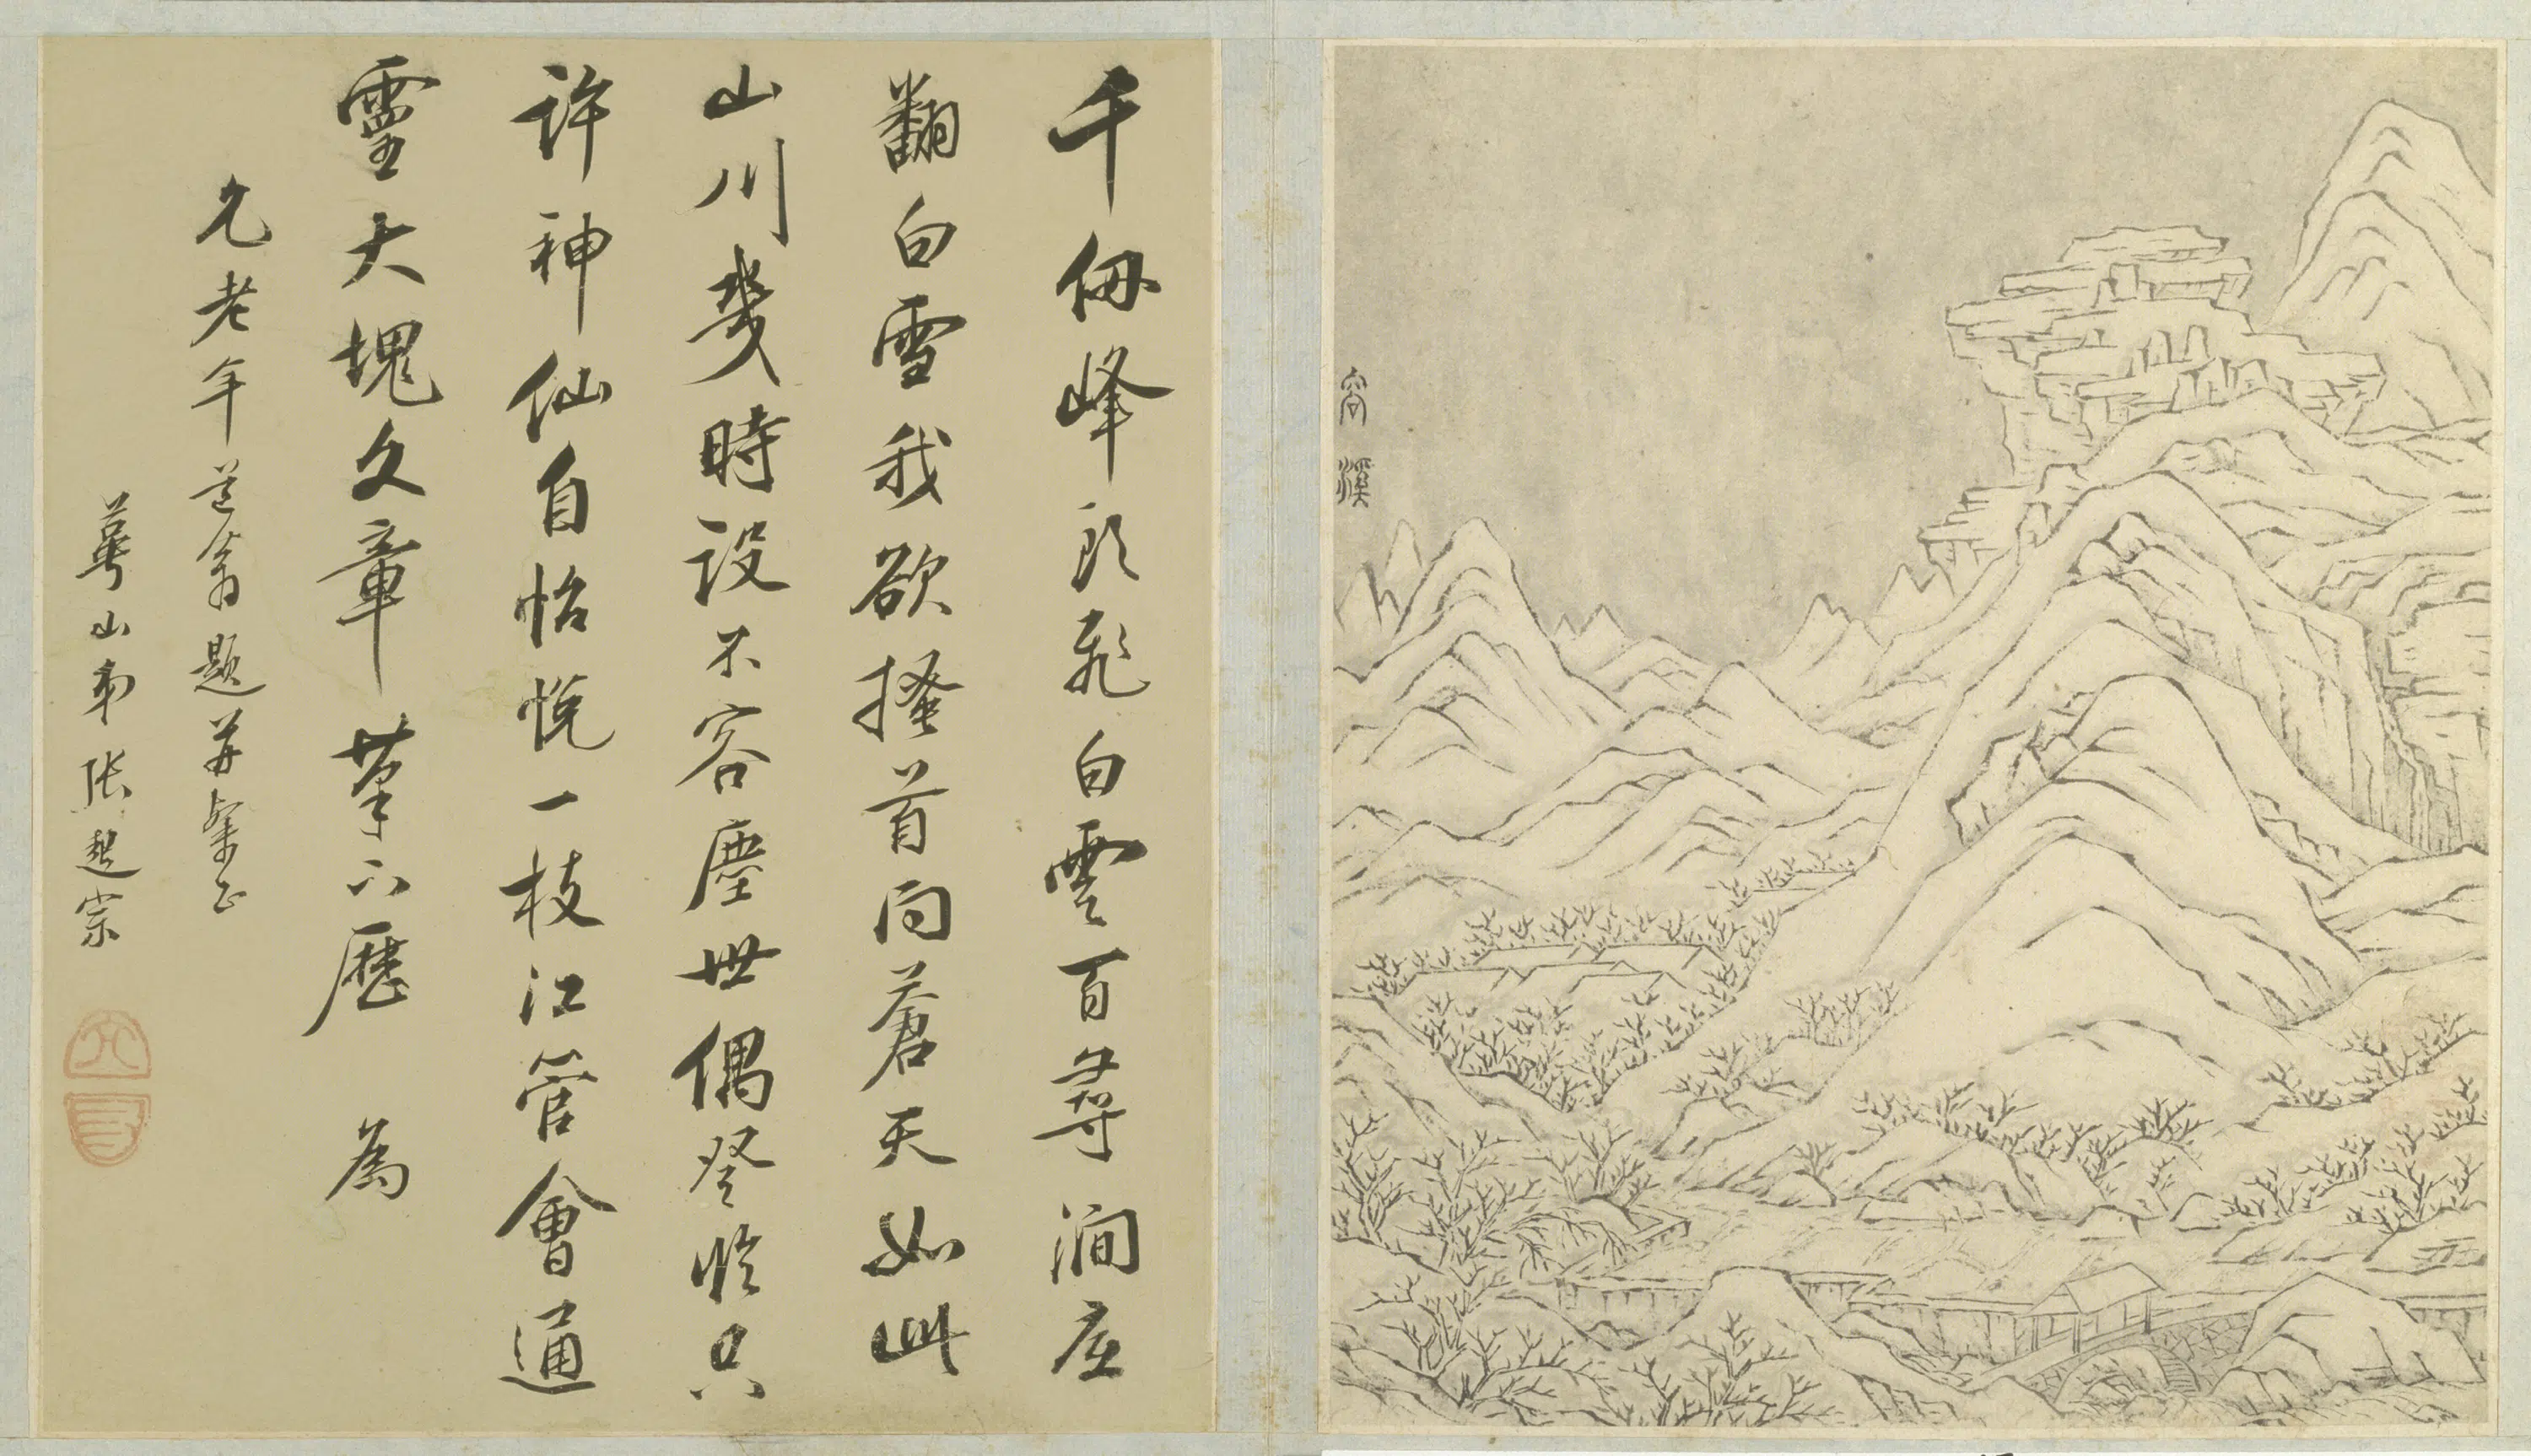 容溪
千仞峰頭飛白雲百尋澗底
翻白雪我欲搔首問蒼天如此
山川幾時設不容塵世偶登臨只
許神仙自怡悅一枝江管會通
靈大塊文章筆下歷 為
允老年道翁題并粲正
萼山弟張起宗